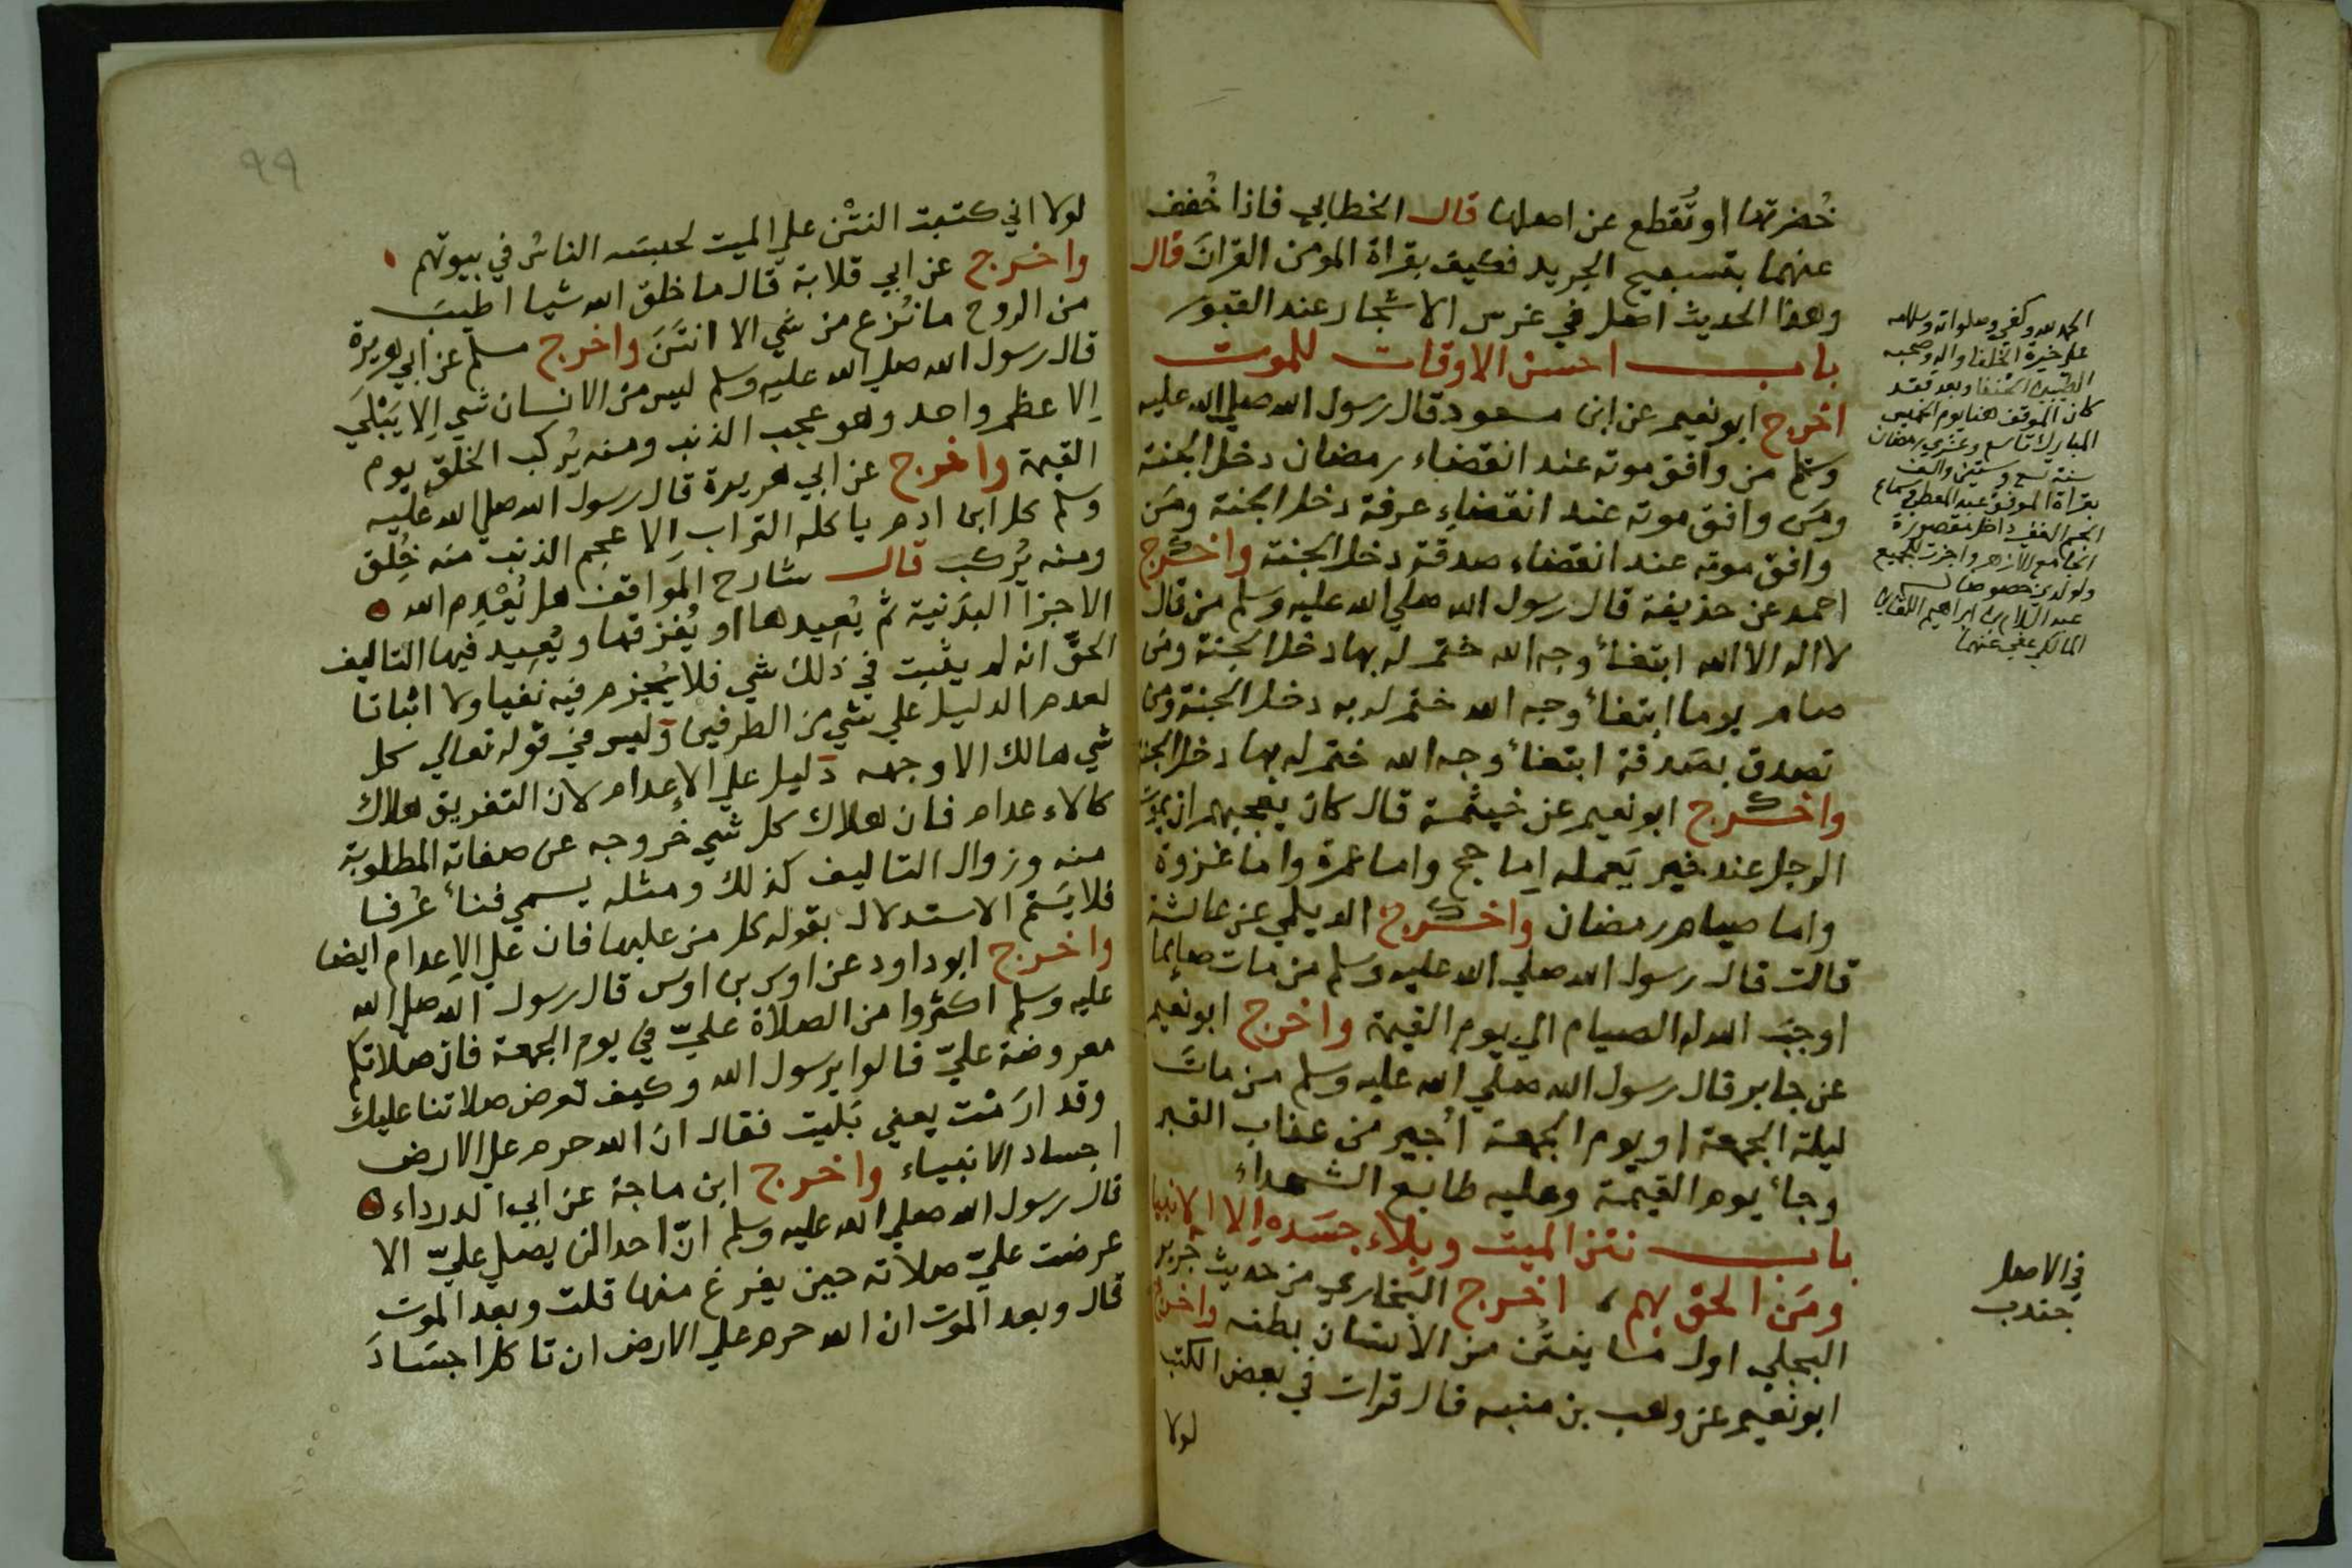 خُضرتها او تُقطع عن اصلها قال الخطابي فاذا خُفف
عنهما بتسبيح الجريد فكيف بقراة المومن القرانَ قال
وهذا الحديث اصل في غرس الاشجار عند القبور
باب احسن الاوقات للموت
اخرج ابو نعيم عن ابن مسعود قال رسول الله صلي الله عليه
وسلم من وافق موته عند انقضاء رمضان دخل الجنة
ومَن وافق موته عند انقضاءِ عرفة دخل الجنة ومَن
وافق موته عند انقضاء صدقة دخل الجنة واخرج
احمد عن حذيفة قال رسول الله صلي الله عليه وسلم من قال
لا اله الا الله ابتغأ وجه الله ختم له بها دخل الجنة ومن
صام يوما ابتغأ وجه الله ختم له به دخل الجنة ومن
تصدق بصَدقة ابتغأ وجه الله ختم له بها دخل الجنة
واخرج ابو نعيم عن خيثمة قال كان يعجبهم ان يموت
الرجل عند خير يَعمله اِما حج واما عمرة واما غزوة
واما صيام رمضان واخرج الديلمي عن عائشة
قالت قال رسول الله صلي الله عليه وسلم من مات صايما
اوجبَ الله له الصيام الي يوم القيمة واخرج ابو نعيم
عن جابر قال رسول الله صلي الله عليه وسلم من ماتَ
ليلة الجمعة او يوم الجمعة اُجير من عذاب القبر
وجأ يوم القيمة وعليه طابع الشهداء
باب نتن الميت وبلاء جسَده اِلا الانبيا
ومَن الحق بهم، اخرج البخاري من حديث جرير
البجلي اول مَا ينتُن من الانسان بطنه واخرج
ابو نعيم عن وهب بن منبه قال قرات في بعض الكتب
لولا
الحمد لله وكفي وصلواته وسلامه
علي خيرة الخلفا واله وصحبه
الطيبين الحنفا وبعد فقد
كان الموقف هنا يوم الخميس
المبارك تاسع وعشري رمضان
سنة تسع وستين والف
بقراة الموفق عبد المعطي وسماع
الجم الغفير داخل مقصورة
الجامع الازهر واجزت للجميع
ولولدي خصوصا
عبد السلام بن ابراهيم اللقاني
المالكي عفي عنهما
في الاصل
جندب
٩٩
لولا اني كتبت النتْن علي الميت لحبسَه الناسُ في بيوتهم
واخرج عن ابي قلابة قال ما خلق الله شيا اطيبَ
من الروح ما نُزع من شي الا انتَنَ واخرج مسلم عن ابي هريرة
قال رسول الله صلي الله عليه وسلم ليس من الانسان شي اِلا يَبْلَي
اِلا عظم واحد وهو عجب الذنب ومنه يُركب الخلق يوم
القيمة واخرج عن ابي هريرة قال رسول الله صلي الله عليه
وسلم كل ابن ادم ياكله التراب اِلا عجم الذنب منه خُلق
ومنه يُركب قال شارح المَواقف هل يُعْدِم الله
الاجزا البدَنية ثم يُعيدها او يُفرقها ويُعيد فيها التاليف
الحقّ انه لم يثبت في ذلك شي فلا يُجزم فيه نفيا ولا اثباتا
لعدم الدليل علي شي من الطرفين وليس في قوله تعالي كل
شي هالك الا وجهه دليل علي الاِعدام لان التفريق هلاك
كالاعدام فان هلاك كل شي خروجه عن صفاته المطلوبة
منه وزوال التاليف كذلك ومثله يسمي فنأ عُرفا
فلا يَتم الاستدلال بقوله كل من عليها فان علي الاِعدام ايضا
واخرج ابو داود عن اوس بن اوس قال رسول الله صلي الله
عليه وسلم اكثروا من الصلاة عليّ في يوم الجمعة فان صلاتكم
معروضة عليّ قالوا يرسول الله وكيف تعرض صلاتنا عليك
وقد ارَمْت يعني بَليت فقال ان الله حرم علي الارض
اجساد الانبياء واخرج ابن ماجة عن ابي الدرداء
قال رسول الله صلي الله عليه وسلم انّ احدا لن يصلي عليّ الا
عرضت عليّ صلاته حين يفرغ منها قلت وبعد الموت
قال وبعد الموت ان الله حرم علي الارض ان تاكل اجسَادَ